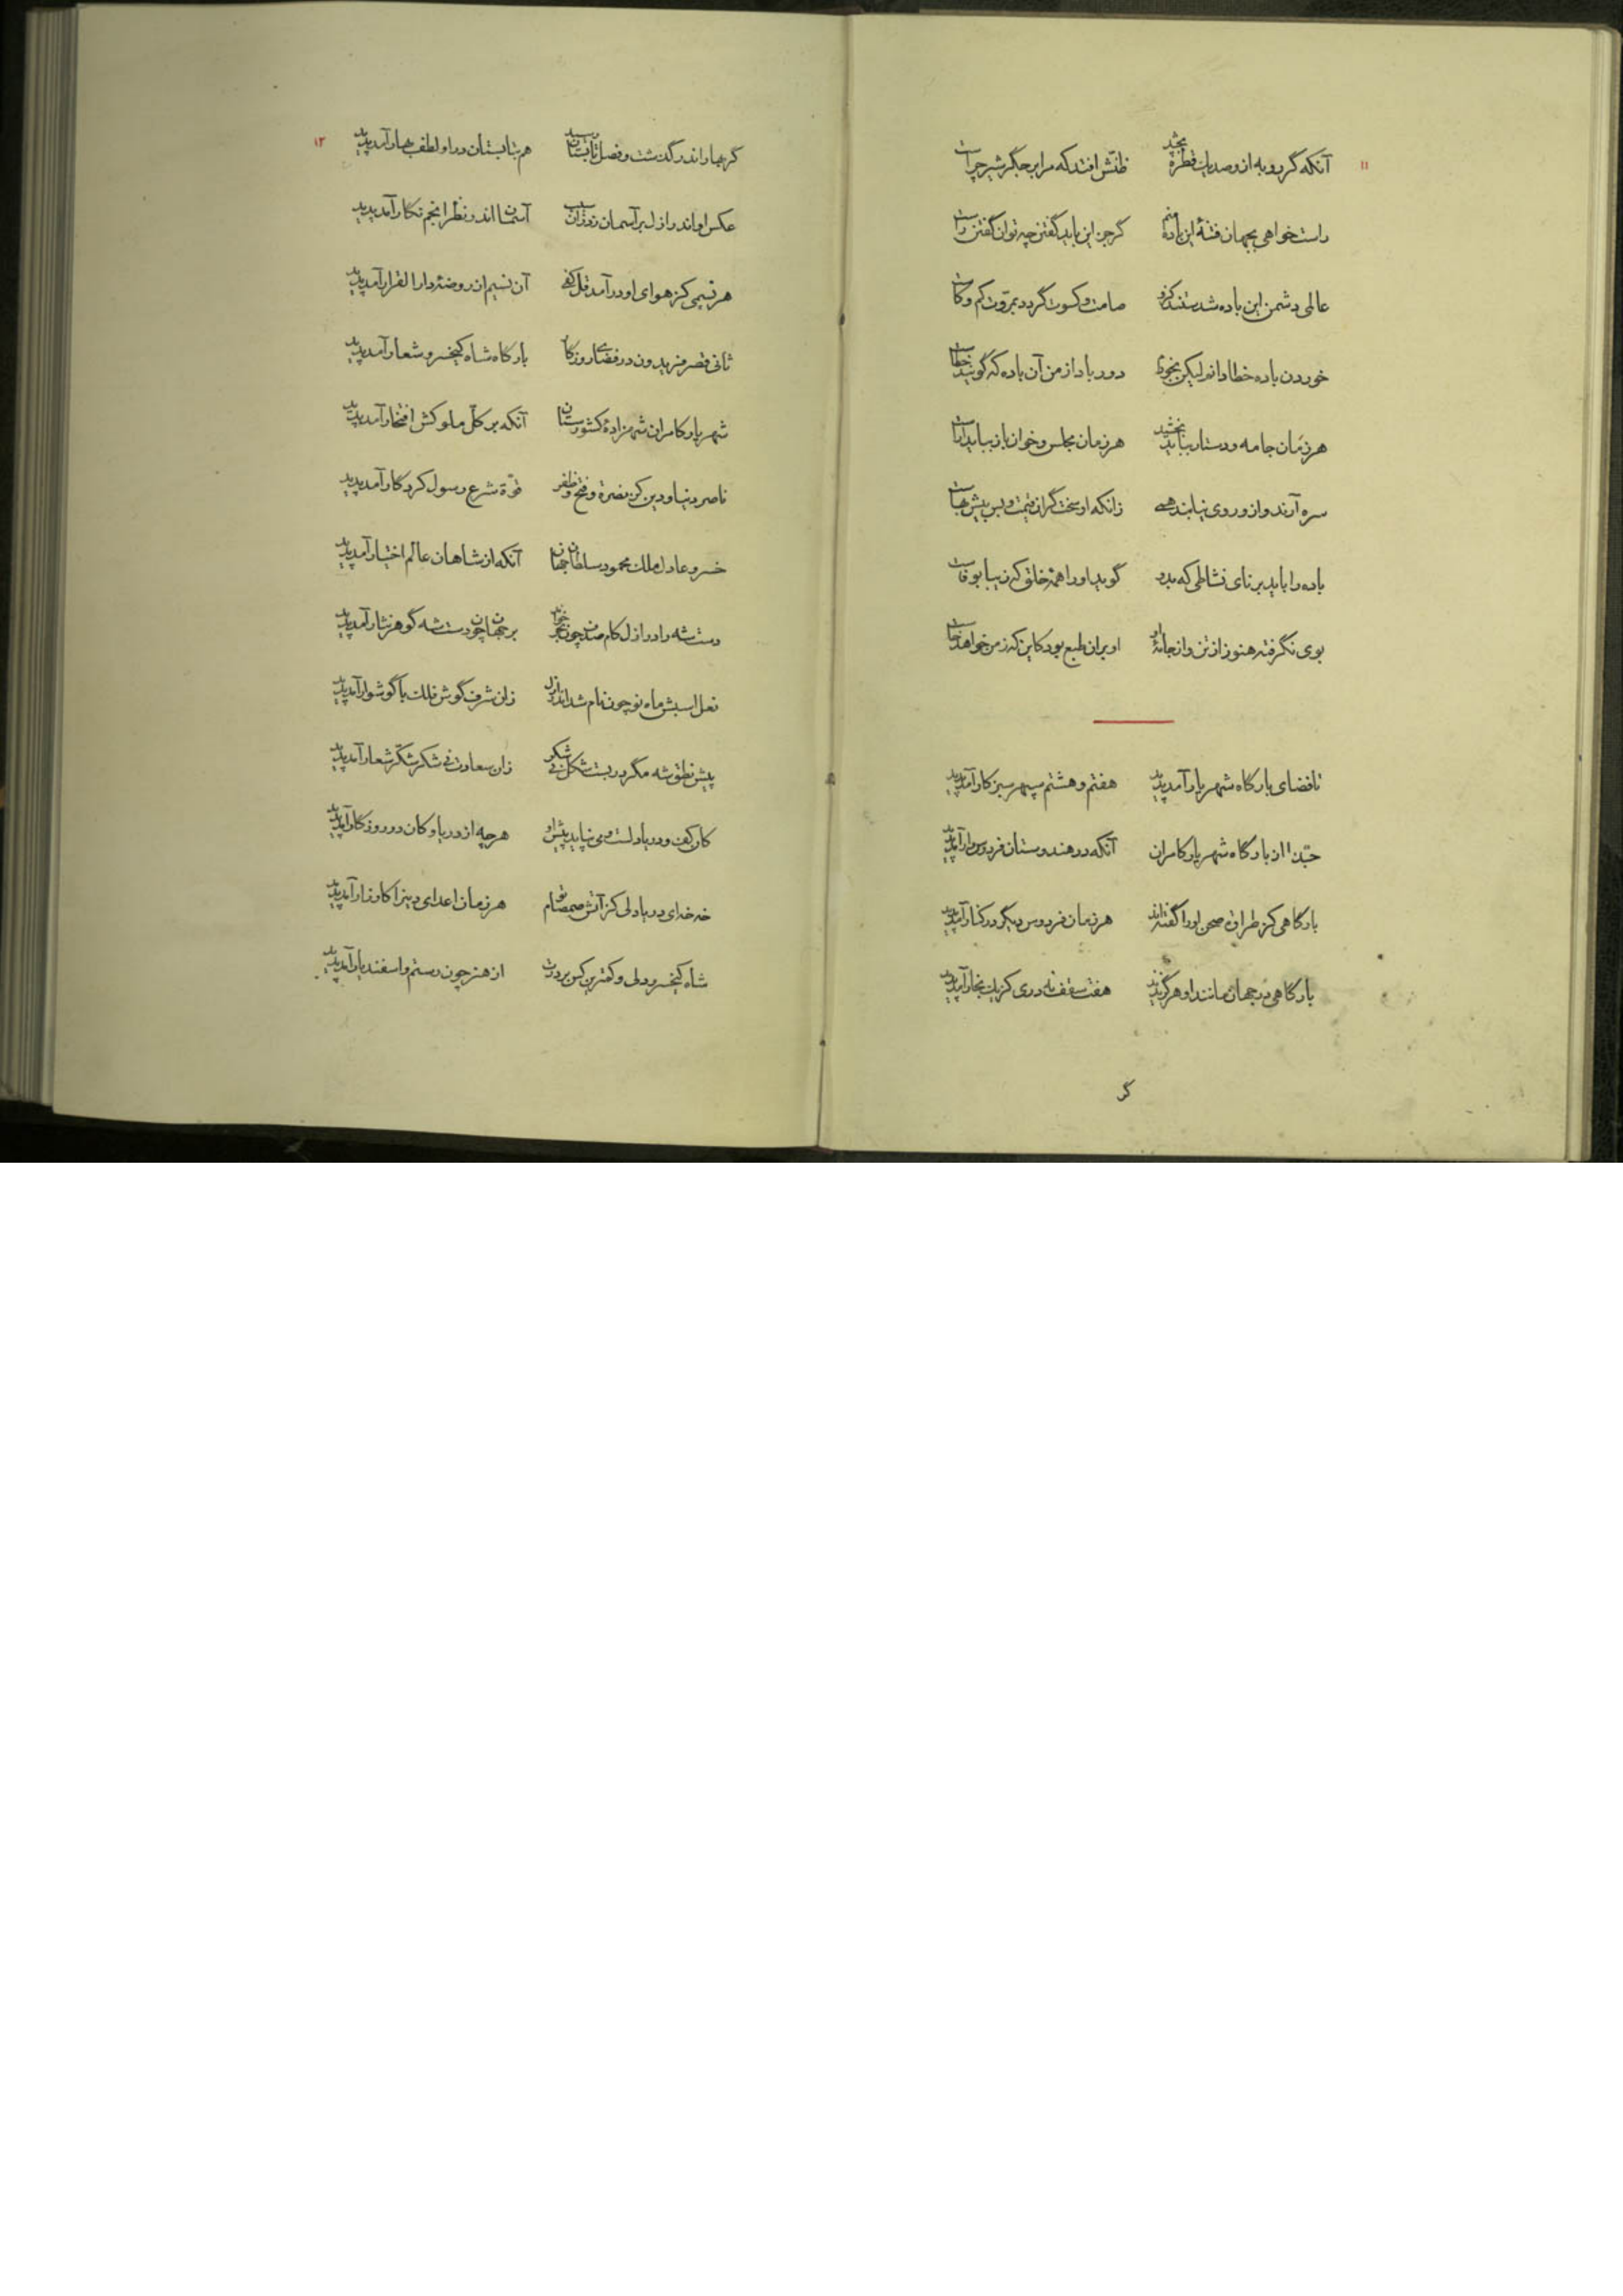 ۱۱
آنکه گر روبه ازو صد یک قطره بچشد ظنش افتد که مرا بر جگر شیر چراست
راست خواهی بجهان فتنهٔ این باده منم گر جز این باید گفتن چه توان گفتن راست
عالمی دشمن این باده شدستند کزو صامت و کسوت گردد بمروت کم و کاست
خوردن باده خطا دانم لیکن بخودی دور باد از من آن باده که گویند خطاست
هر زمان جامه و دستار بباید بخشید هر زمان مجلس و خوان باز بباید آراست
سره آرند و ازو روی نیابند همی زانکه او سخت گران قیمت و بس بیش بهاست
باده را باید برنای نشاطی که بدو گوید او را همه خلق که زیبا برناست
بوی نگرفته هنوز از تن و از جامهٔ او بران طبع بود کاین که ز من خواهد خاست
تا فضای بارگاه شهریار آمد پدید هفتم و هشتم سپهر سبز کار آمد پدید
حبذا از بارگاه شهریار کامران آنکه در هندوستان فردوس وار آمد پدید
بارگاهی کز طراف صحن او را گفته‌اند هر زمان فردوس دیگر در کنار آمد پدید
بارگاهی در جهان مانند او هرگز ندید هفت سقف نه دری کز یک بخار آمد پدید
گر
۱۲
گر بهار اندر گذشت و فصل تابستان رسید هم بتابستان درو لطف بهار آمد پدید
عکس او اندر ازل بر آسمان زد زان سبب آسمانها اندر نظر انجم نگار آمد پدید
هر نسیمی کز هوای او درآمد قل کفی آن نسیم از روضهٔ دارالقرار آمد پدید
ثانی قصر فریدون در فضای روزگار بارگاه شاه کیخسرو شعار آمد پدید
شهریار کامران شهزادهٔ کشورستان آنکه بر کل ملوکش افتخار آمد پدید
ناصر دنیا و دین کز نصرة و فتح و ظفر قوة شرع رسول کردگار آمد پدید
خسرو عادل ملک محمود سلطان جهان آنکه از شاهان عالم اختیار آمد پدید
دست شه را در ازل کام صدف چون بحر خواند بر جهان چون دست شه گوهر نثار آمد پدید
نعل اسبش ماه نو چون نام شد اندر ازل زان شرف گوش فلک با گوشوار آمد پدید
پیش نطق شه مگر در بست شکل نی شکر زان سعادت نی شکر شکر شعار آمد پدید
کان کف و دریا دلست و می نپاید پیش او هرچه از دریا و کان در روزگار آمد پدید
خه خه ای دریا دلی کز آتش صمصام تو هر زمان اعدای دین را کارزار آمد پدید
شاه کیخسرو دلی و کمترین کس بر درت از هنر چون رستم و اسفندیار آمد پدید